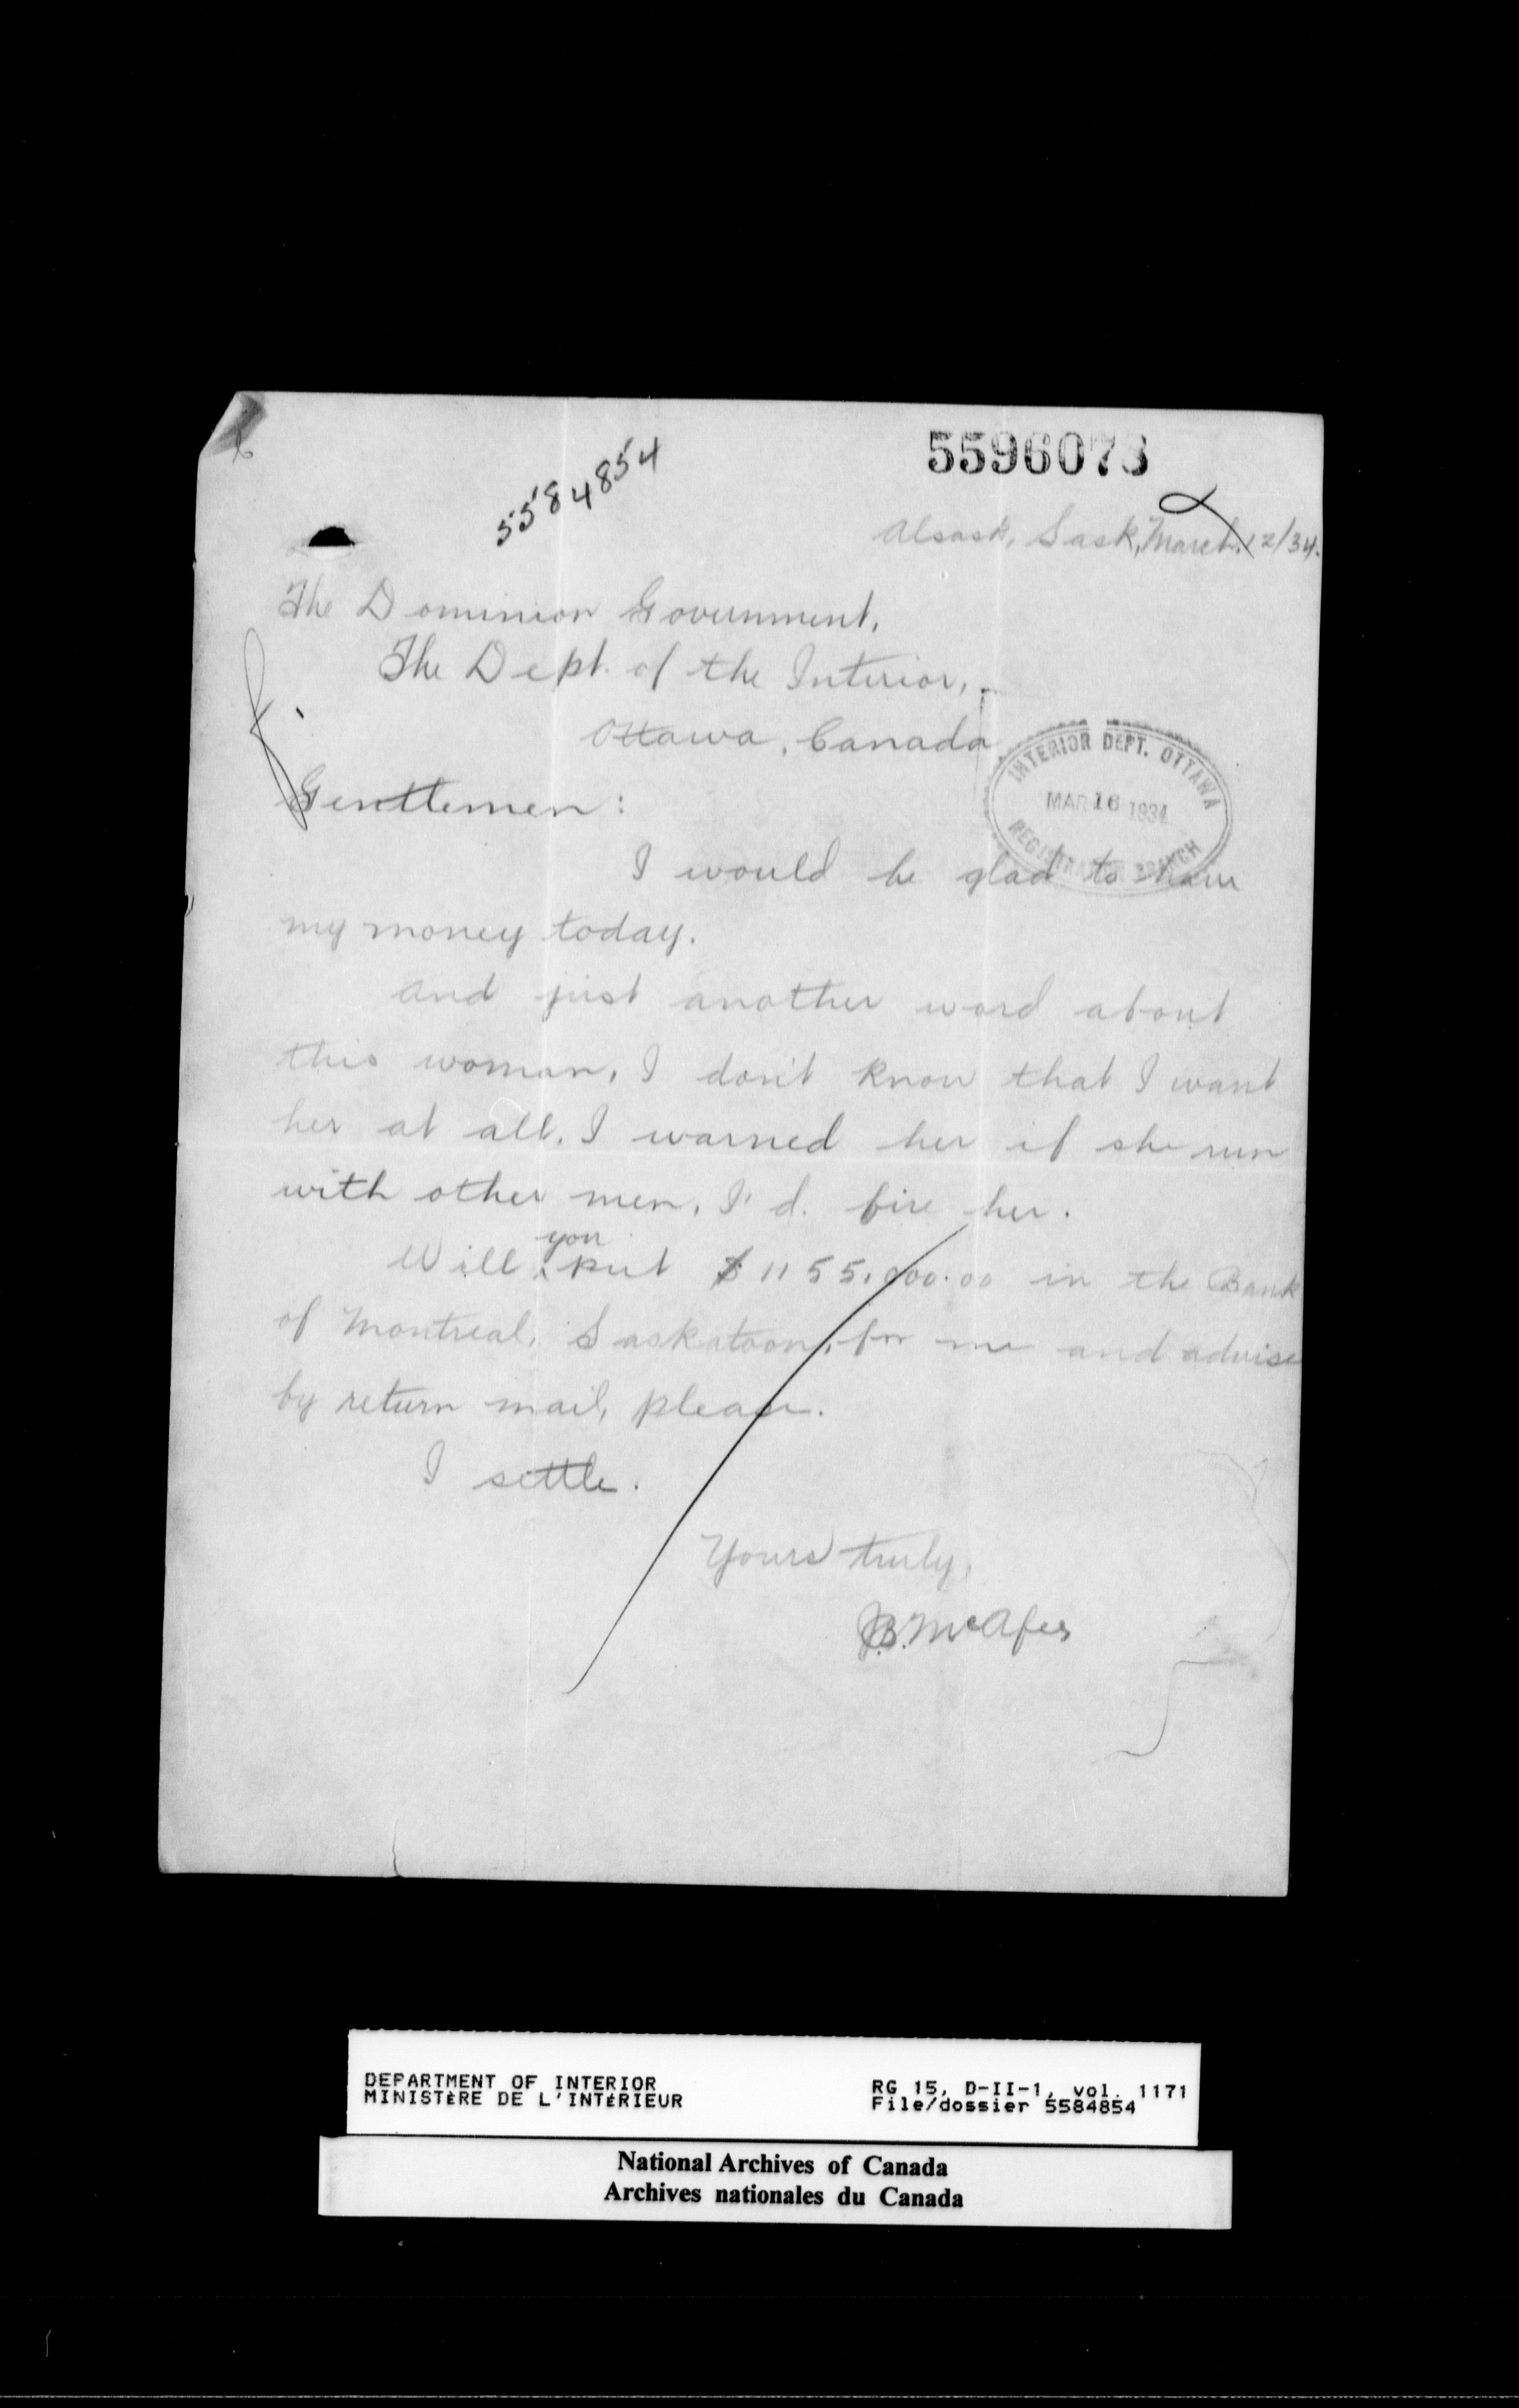 5596073
5584854
Alsask, Sask, March 12/34.
The Dominion Government,
The Dept. of the Interior,
Ottawa, Canada
INTERIOR DEPT. OTTAWA
MAR 16 1934
REGISTRATION BRANCH
Gentlemen:
I would be glad to have
my money today.
And just another word about
this woman, I don't know that I want
her at all. I warned her if she run
with other men, I'd. fire her.
Will you put $1155,000.00 in the Bank
of Montreal, Saskatoon, for me and advise
by return mail, please.
I settle.
Yours truly,
J.B. McAfee
DEPARTMENT OF INTERIOR
MINISTÈRE DE L'INTÉRIEUR
RG 15, D-II-1, vol. 1171
File/dossier 5584854
National Archives of Canada
Archives nationales du Canada